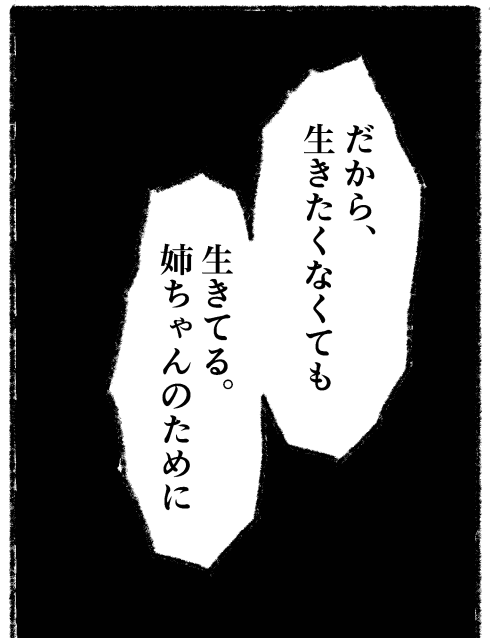 だから、
生きたくなくても
生きてる。
姉ちゃんのために